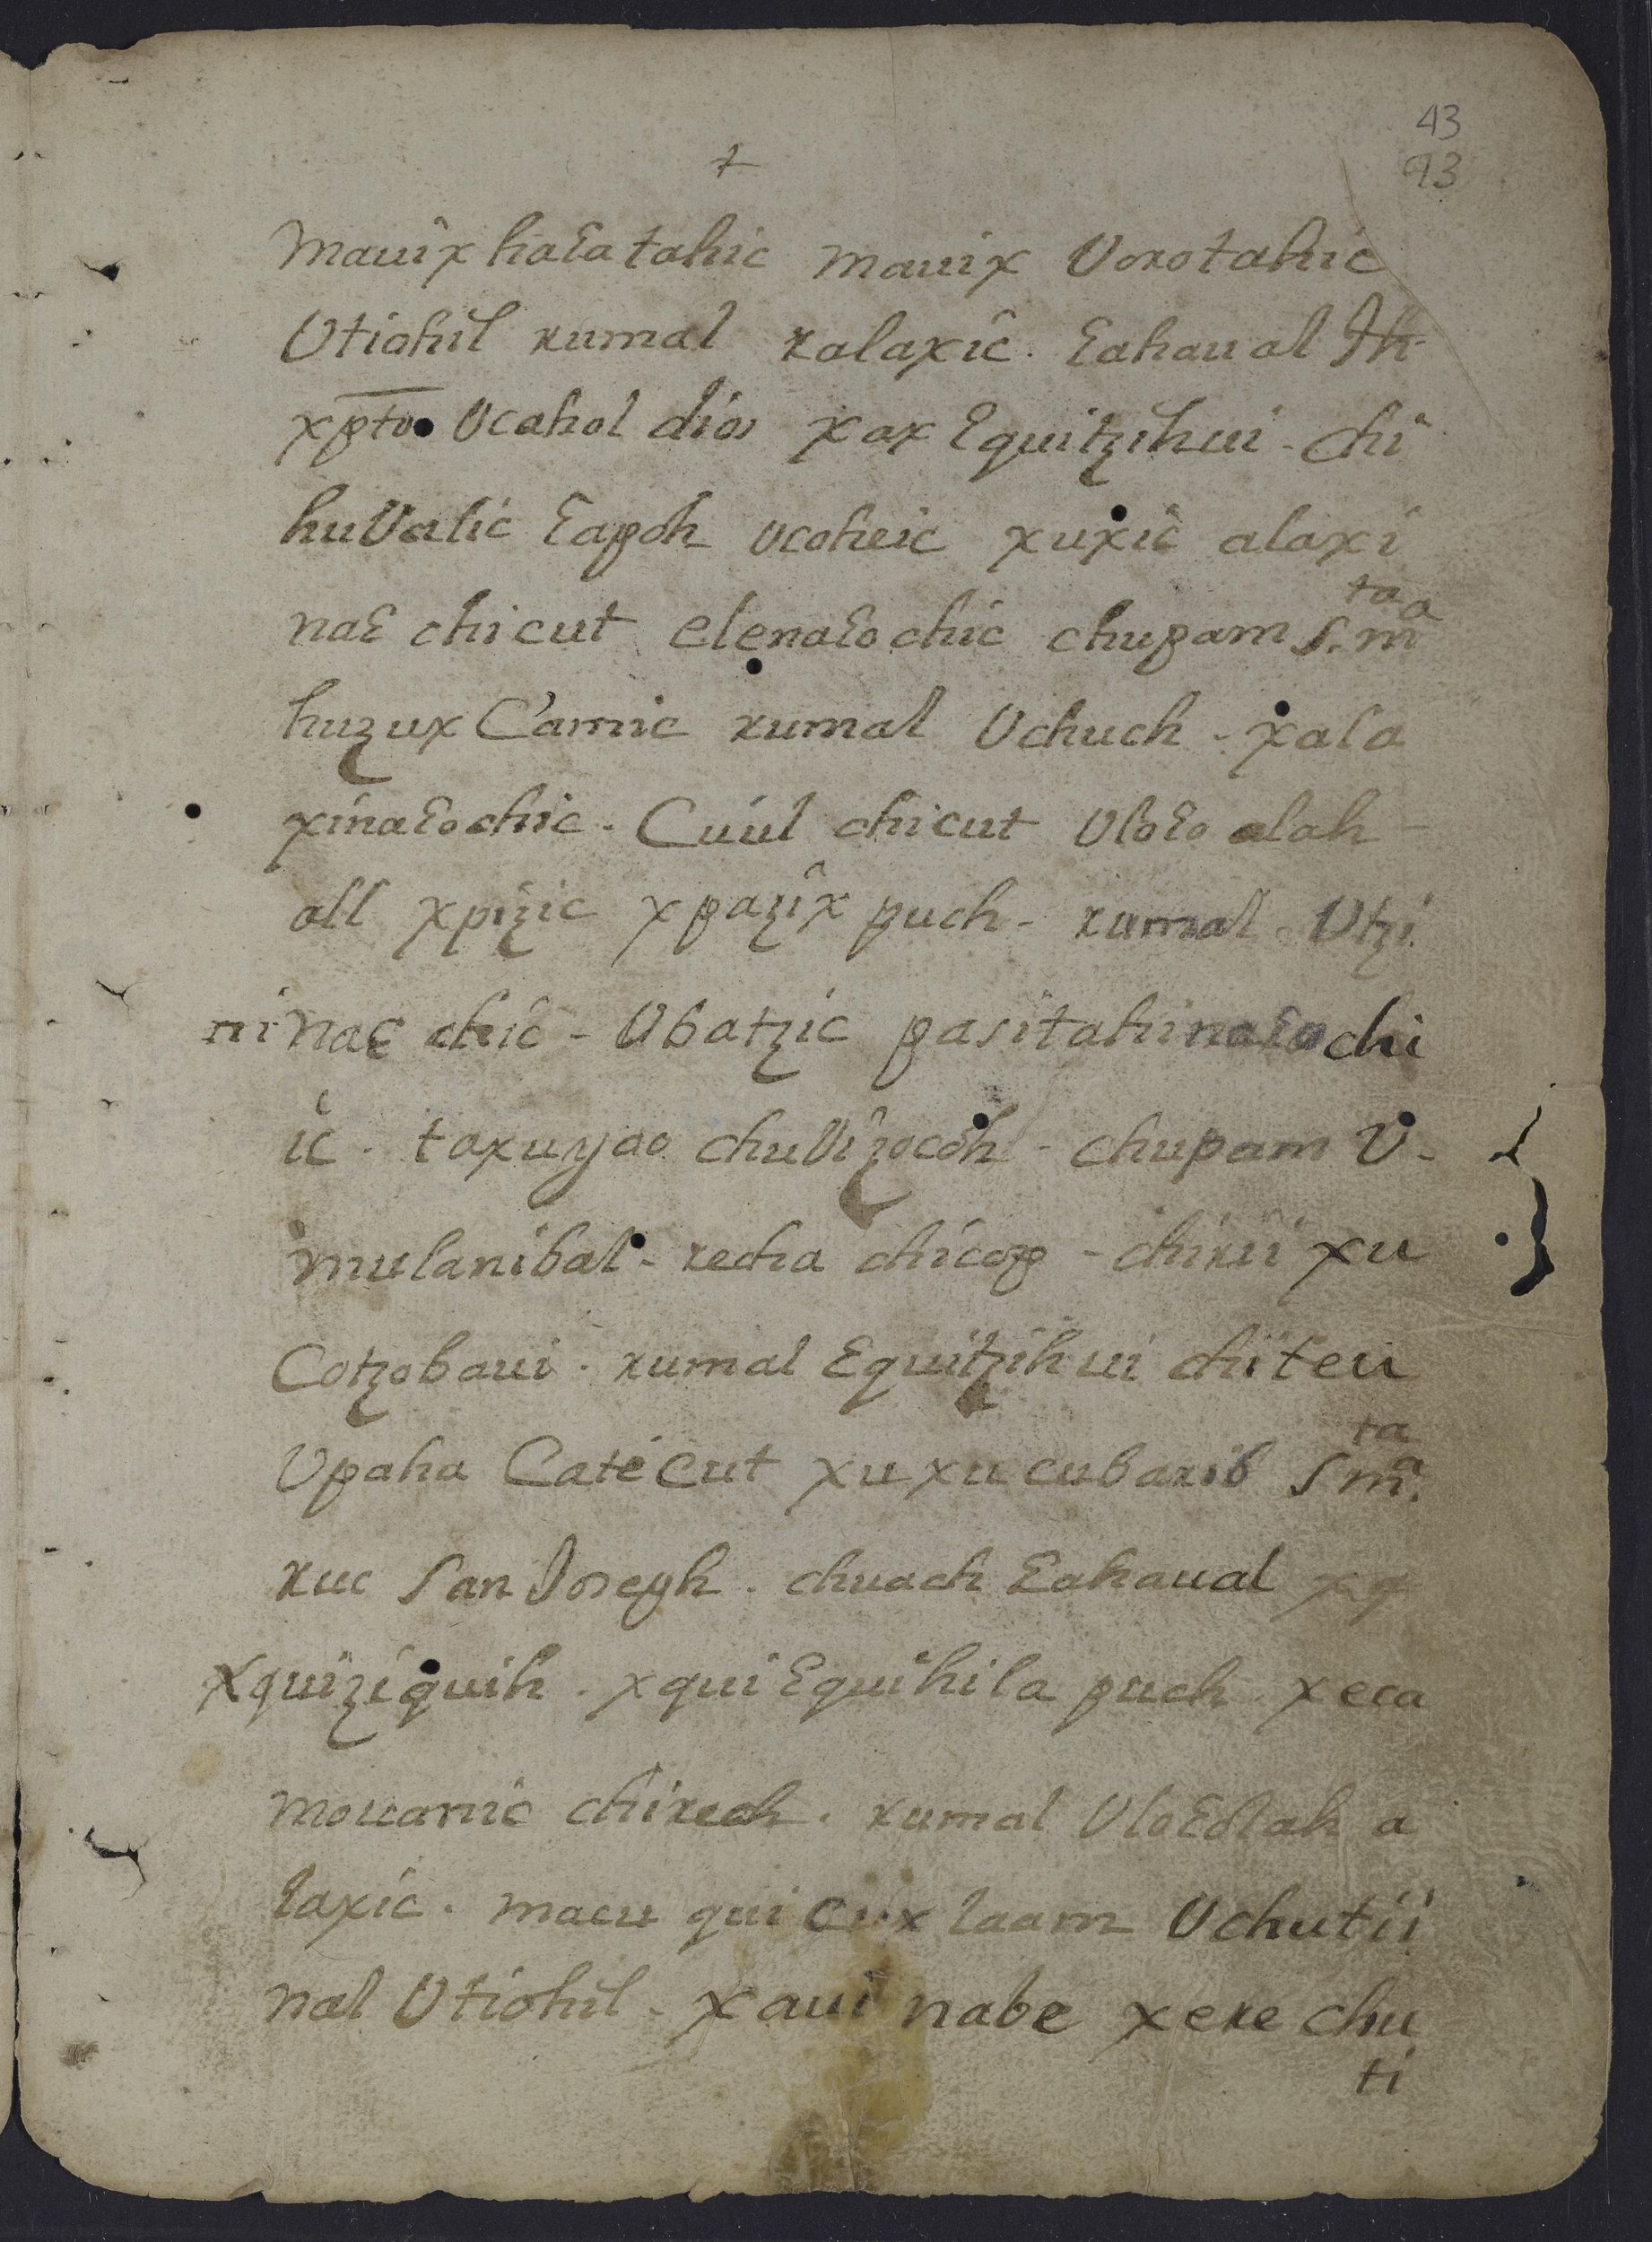 43
93
+
Mauix haɛatahic mauix Vorotahic
Vtiohil rumal ralaxic. ɛahaual Jh-
xpto Vcahol dios xax ɛquitzihui - chi
huValic ɛapoh ucoheic xuxic alaxi
naɛ chicut elenaɛo chic chupam S.ta m.a
huzux Camic rumal Vchuch - xala
xinaɛochic - Cuúl chicut Vloɛo alah -
all xpizic xpazix puch - rumal Vtzi
ninaɛ chic - Vbatzic pasitahinaɛo chi
ic. taxuyao chuVi zocoh - chupam V-
mulanibal - recha chicop - chirii xu
Cotzobaui. rumal ɛquitzihui chi teu
Vpaha Catecut xuxucubarib S.ta m.a
ruc San Joseph. chuach ɛahaual xq
xquiziquih. xqui ɛquihila puch. xeca
mouanic chirech. rumal Vloɛolah a
laxic. macu qui cux laam Vchutii
nal Vtiohil - xaui nabe xere chu
ti